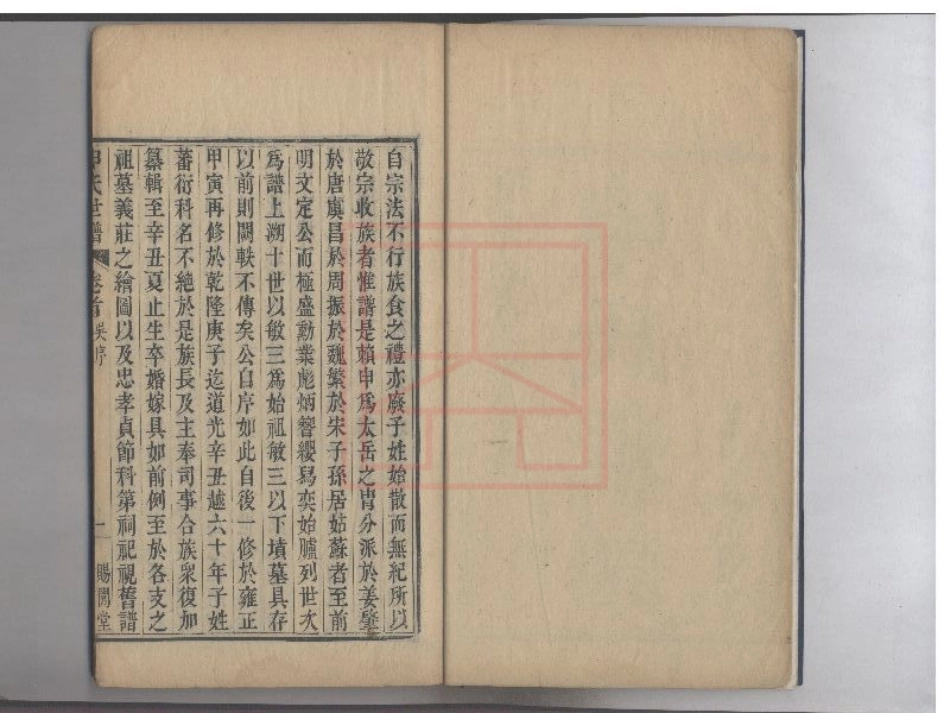 自宗法不行族食之禮亦廢子姓始散而無紀所以
敬宗收族者惟譜是賴申爲太岳之冑分派於姜肇
於唐虞昌於周振於魏繁於宋子孫居姑蘇者至前
明文定公而極盛勳業彪炳簪纓舄奕始臚列世次
爲譜上溯十世以敏三爲始祖敏三以下墳墓具存
以前則闕軼不傳矣公自序如此自後一修於雍正
甲寅再修於乾隆庚子迄道光辛丑越六十年子姓
蕃衍科名不絕於是族長及主奉司事合族眾復加
纂輯至辛丑夏止生卒婚嫁具如前例至於各支之
祖墓義莊之繪圖以及忠孝貞節科第祠祀視舊譜
申氏世譜 卷首 吳序 一 賜閒堂